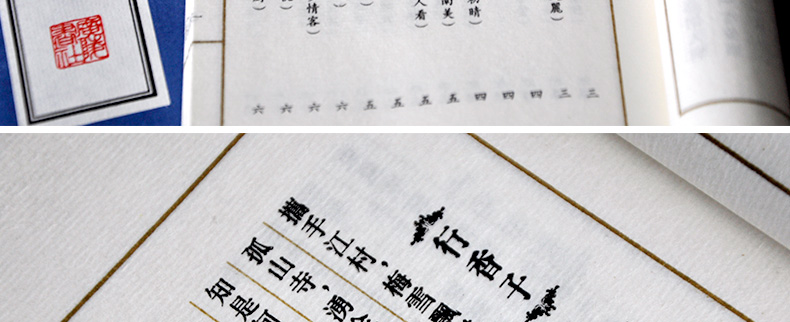 廣陵書社
三
麗）三
四
四
初晴）四
南美）五
人看）五
五
五
六
情客）六
六
六
行香子
攜手江村，梅雪飄
孤山寺，湧
知是何